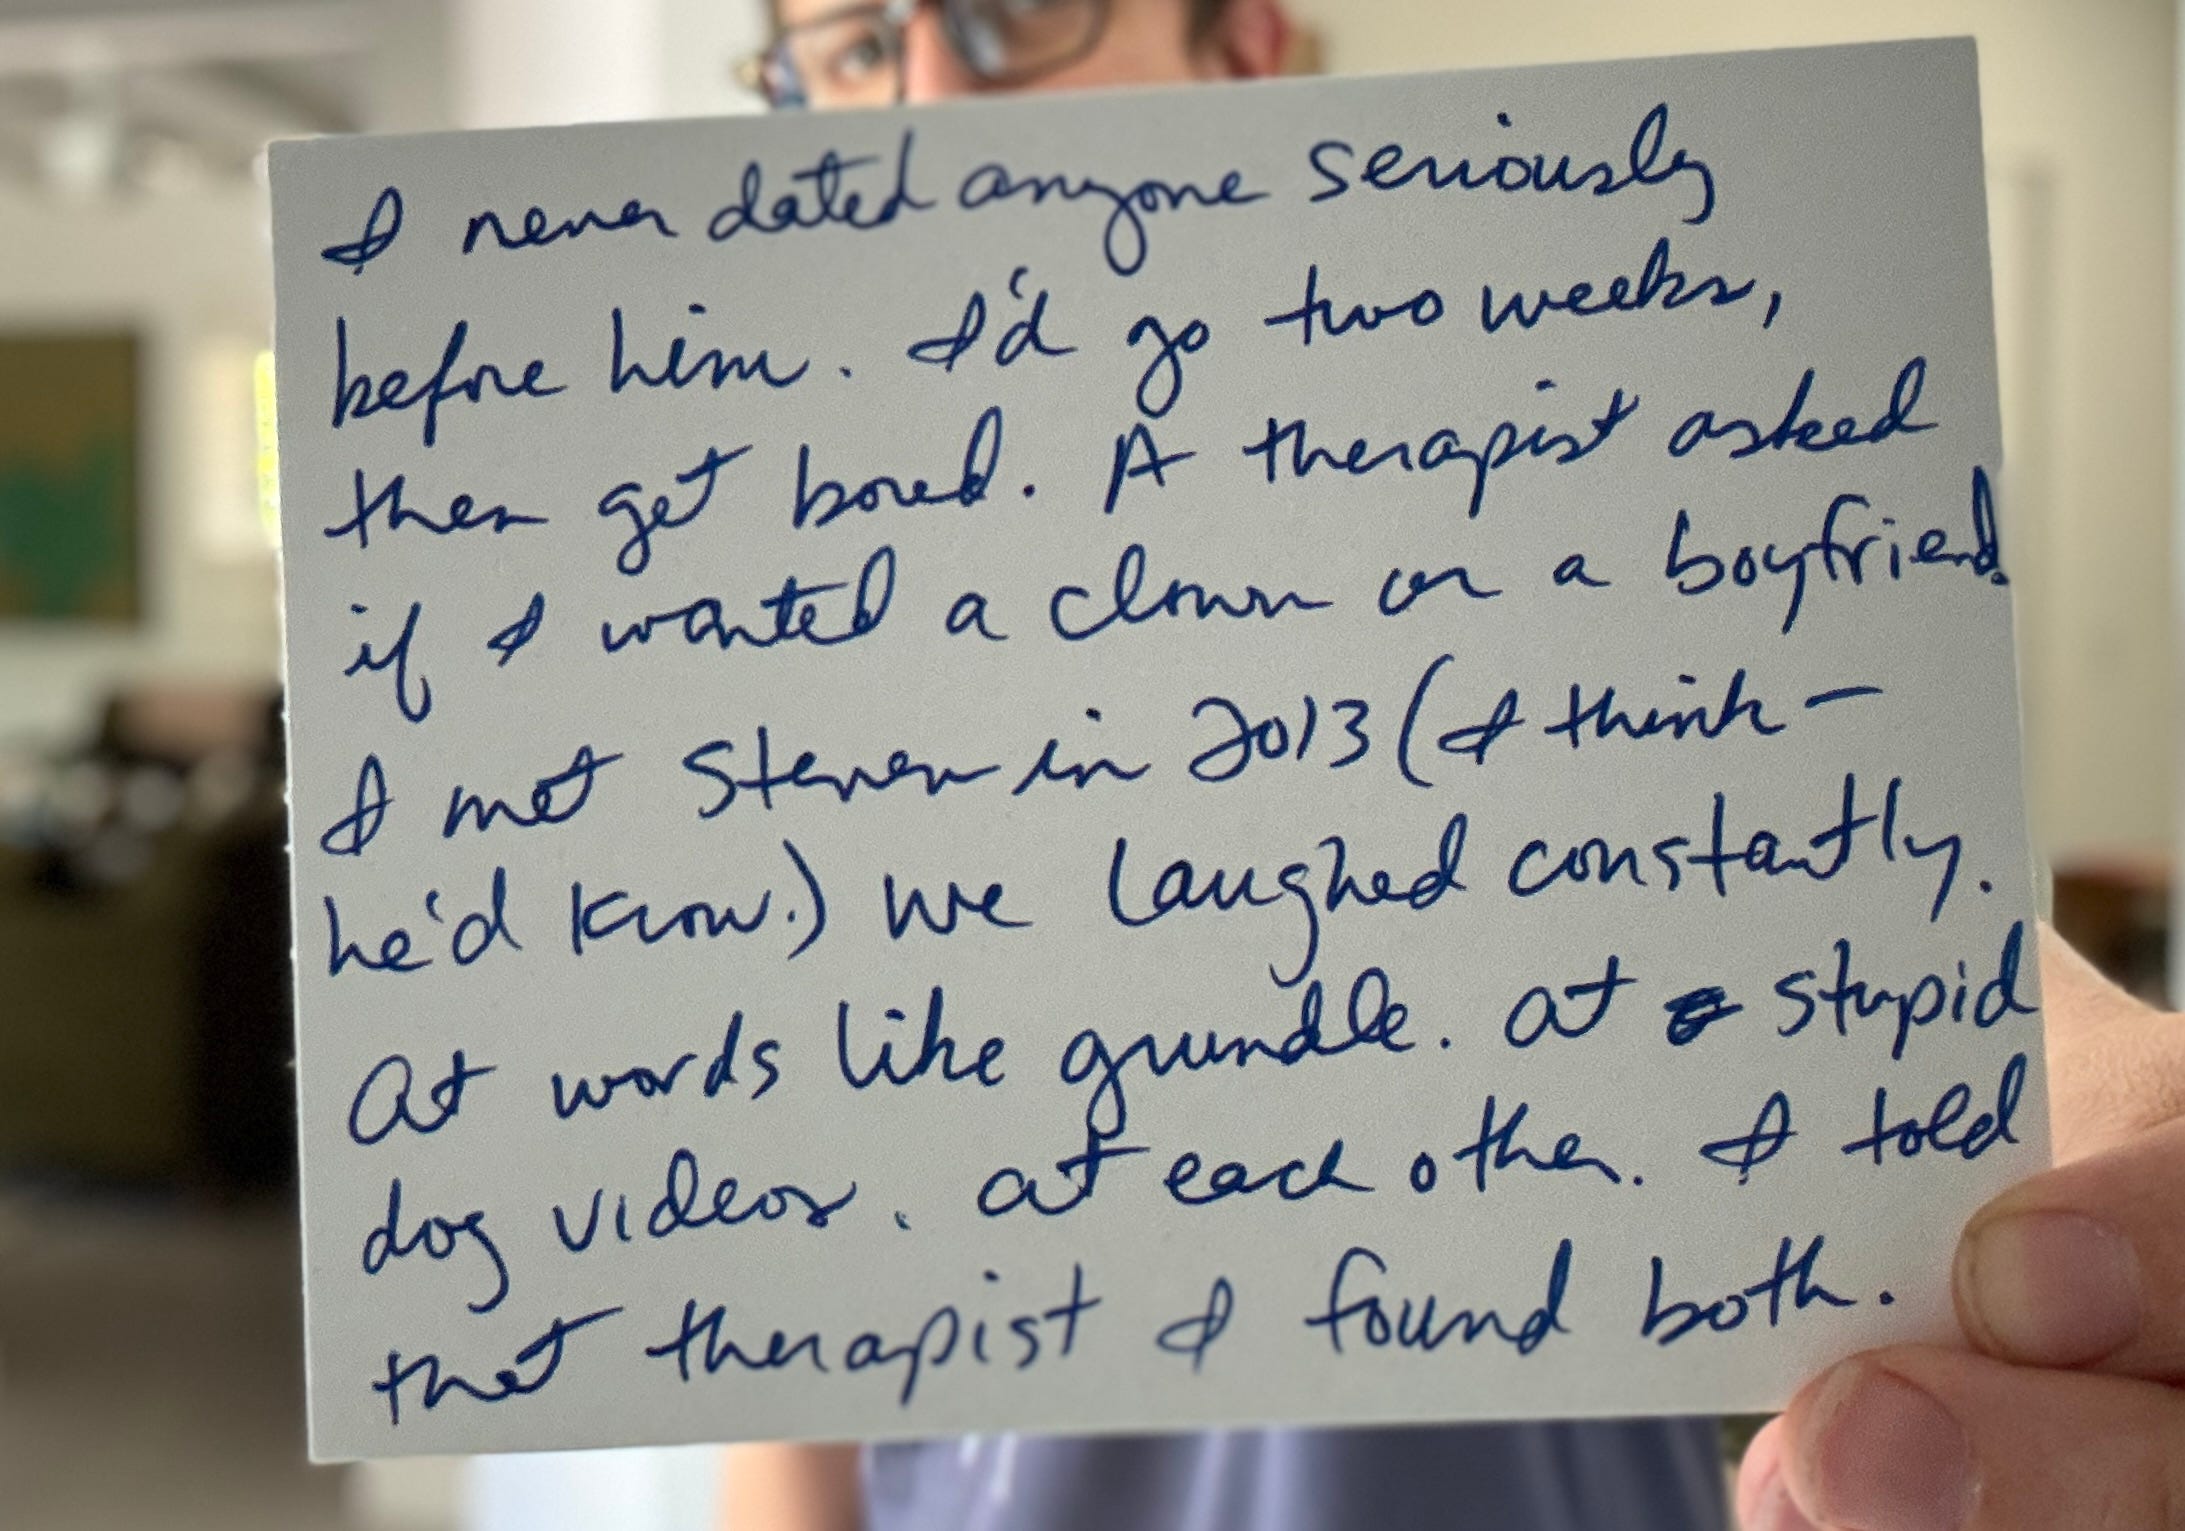 I never dated anyone seriously
before him. I'd go two weeks,
then get bored. A therapist asked
if I wanted a clown or a boyfriend.
I met Steven in 2013 (I think –
he'd know.) We laughed constantly.
At words like grundle. At stupid
dog videos. at each other. I told
that therapist I found both.